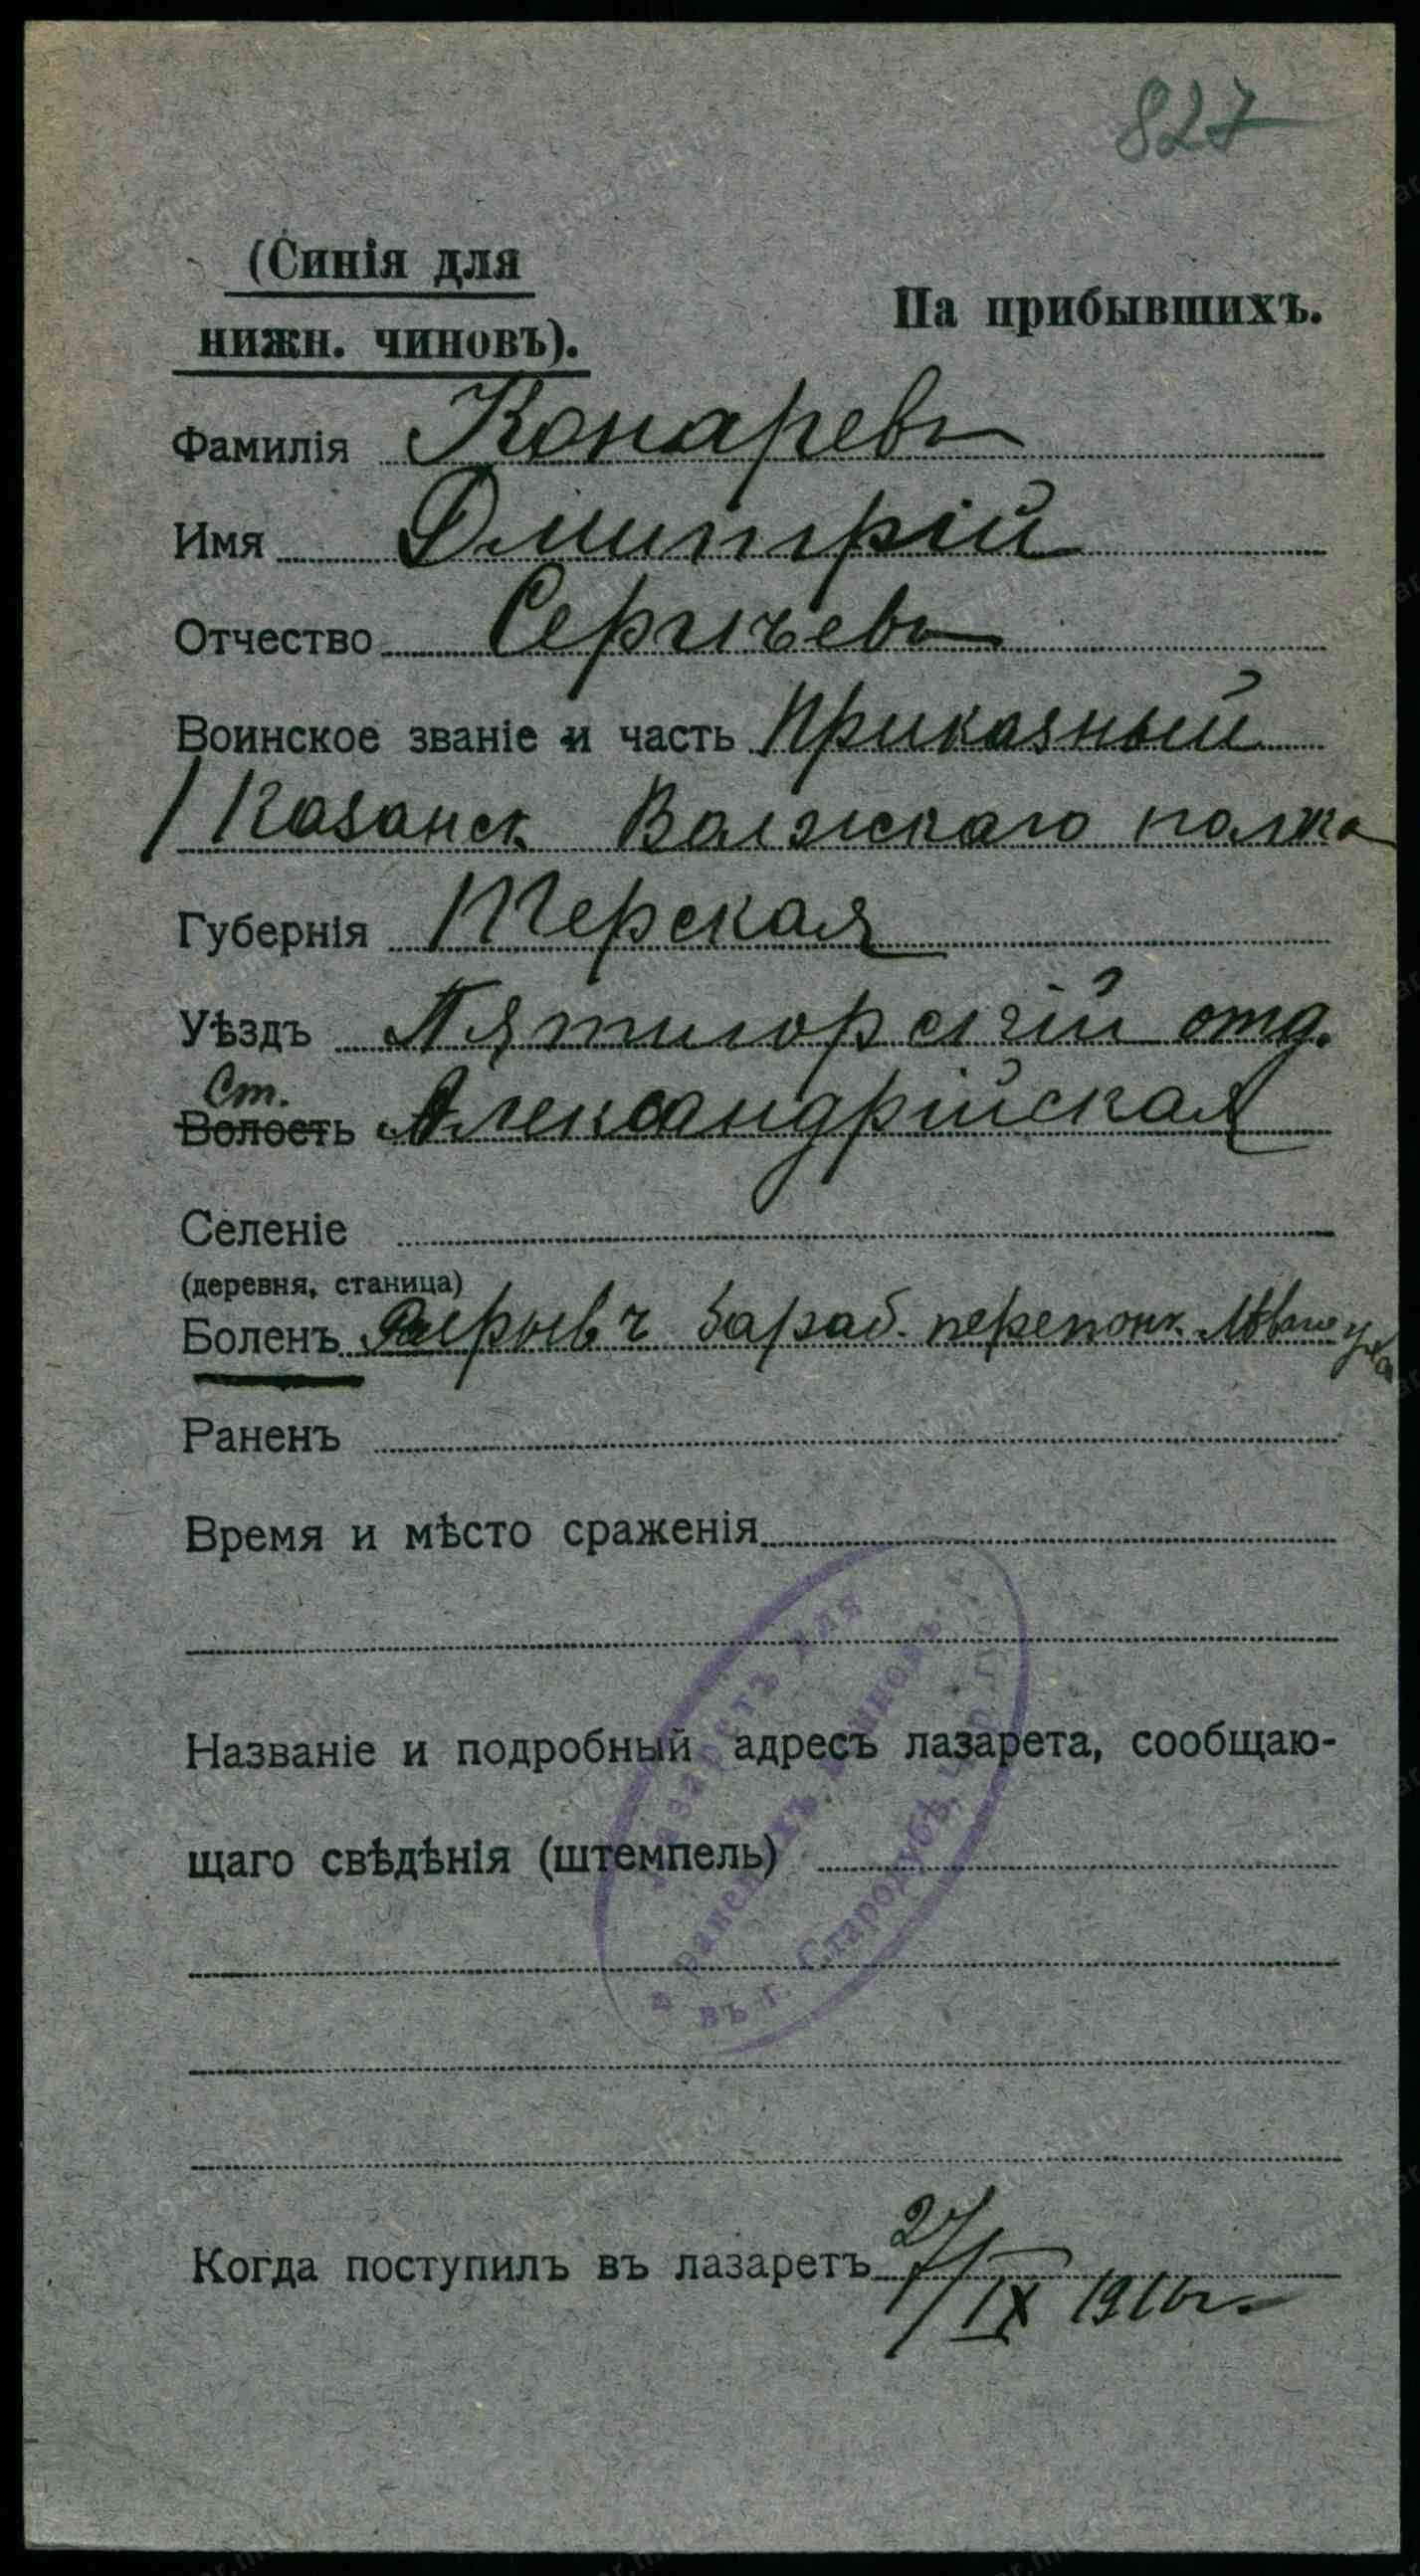 827
(Синія для
нижн. чиновъ).
На прибывшихъ.
Фамилія Конаревъ
Имя Дмитрій
Отчество Сергѣевъ
Воинское званіе и часть Приказный
1 Казанск Волжскаго полка
Губернія Терская
Уѣздъ Пятигорскій отд.
Ст.
Волость Александрійская
Селеніе
(деревня, станица)
Боленъ Разрывъ бараб. перепонк. лѣваго уха
Раненъ
Время и мѣсто сраженія
Названіе и подробный адресъ лазарета, сообщаю-
щаго свѣдѣнія (штемпель)
Лазаретъ для
раненыхъ воиновъ
въ г. Стародубѣ, Чер. г.
Когда поступилъ въ лазаретъ 27/IX 1916 г.